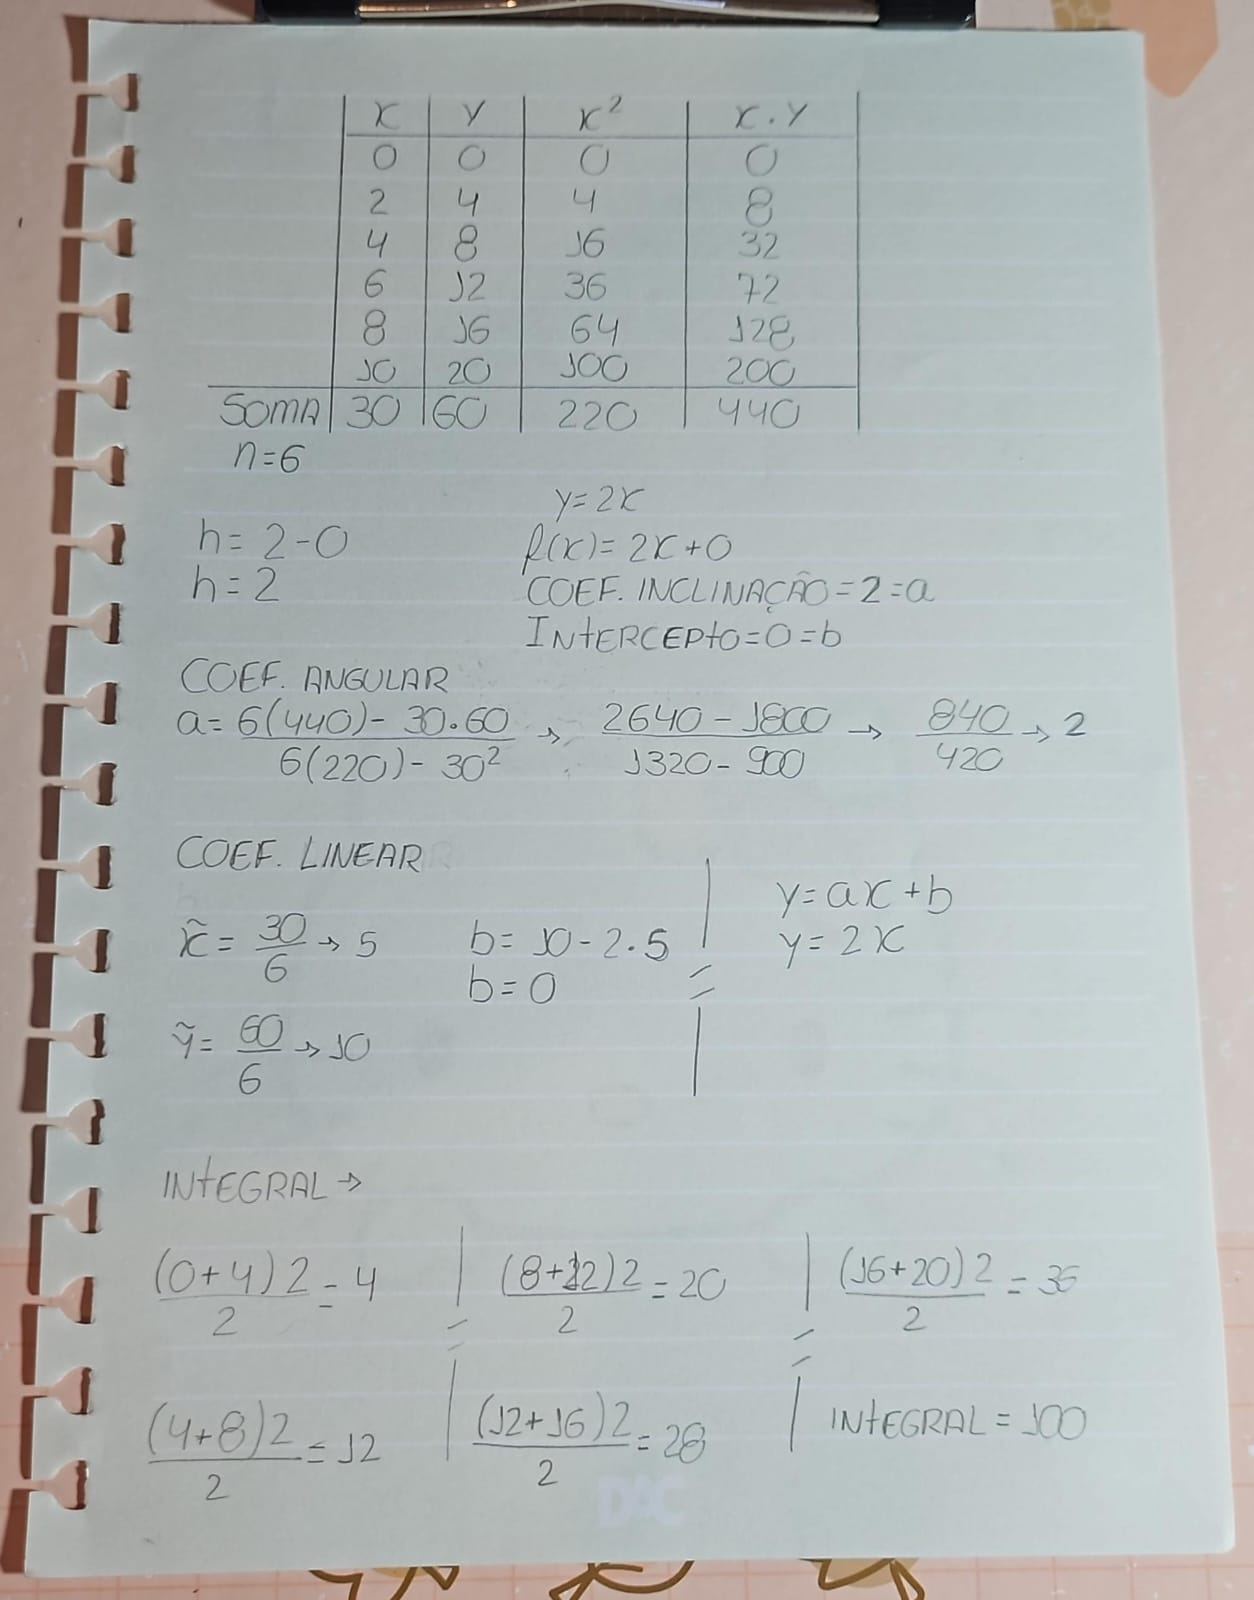 X Y X² X.Y
0 0 0 0
2 4 4 8
4 8 16 32
6 12 36 72
8 16 64 128
10 20 100 200
SOMA 30 60 220 440
n=6
y=2x
h=2-0
f(x)=2x+0
h=2
COEF. INCLINAÇÃO=2=a
INTERCEPTO=0=b
COEF. ANGULAR
a= 6(440)-30.60 / 6(220)-30² → 2640-1800 / 1320-900 → 840/420 → 2
COEF. LINEAR
x̃= 30/6 → 5
ỹ= 60/6 → 10
b= 10-2.5
b=0
y=ax+b
y=2x
INTEGRAL →
(0+4)2/2 = 4
(4+8)2/2 = 12
(8+12)2/2 = 20
(12+16)2/2 = 28
(16+20)2/2 = 36
INTEGRAL = 100
DAC